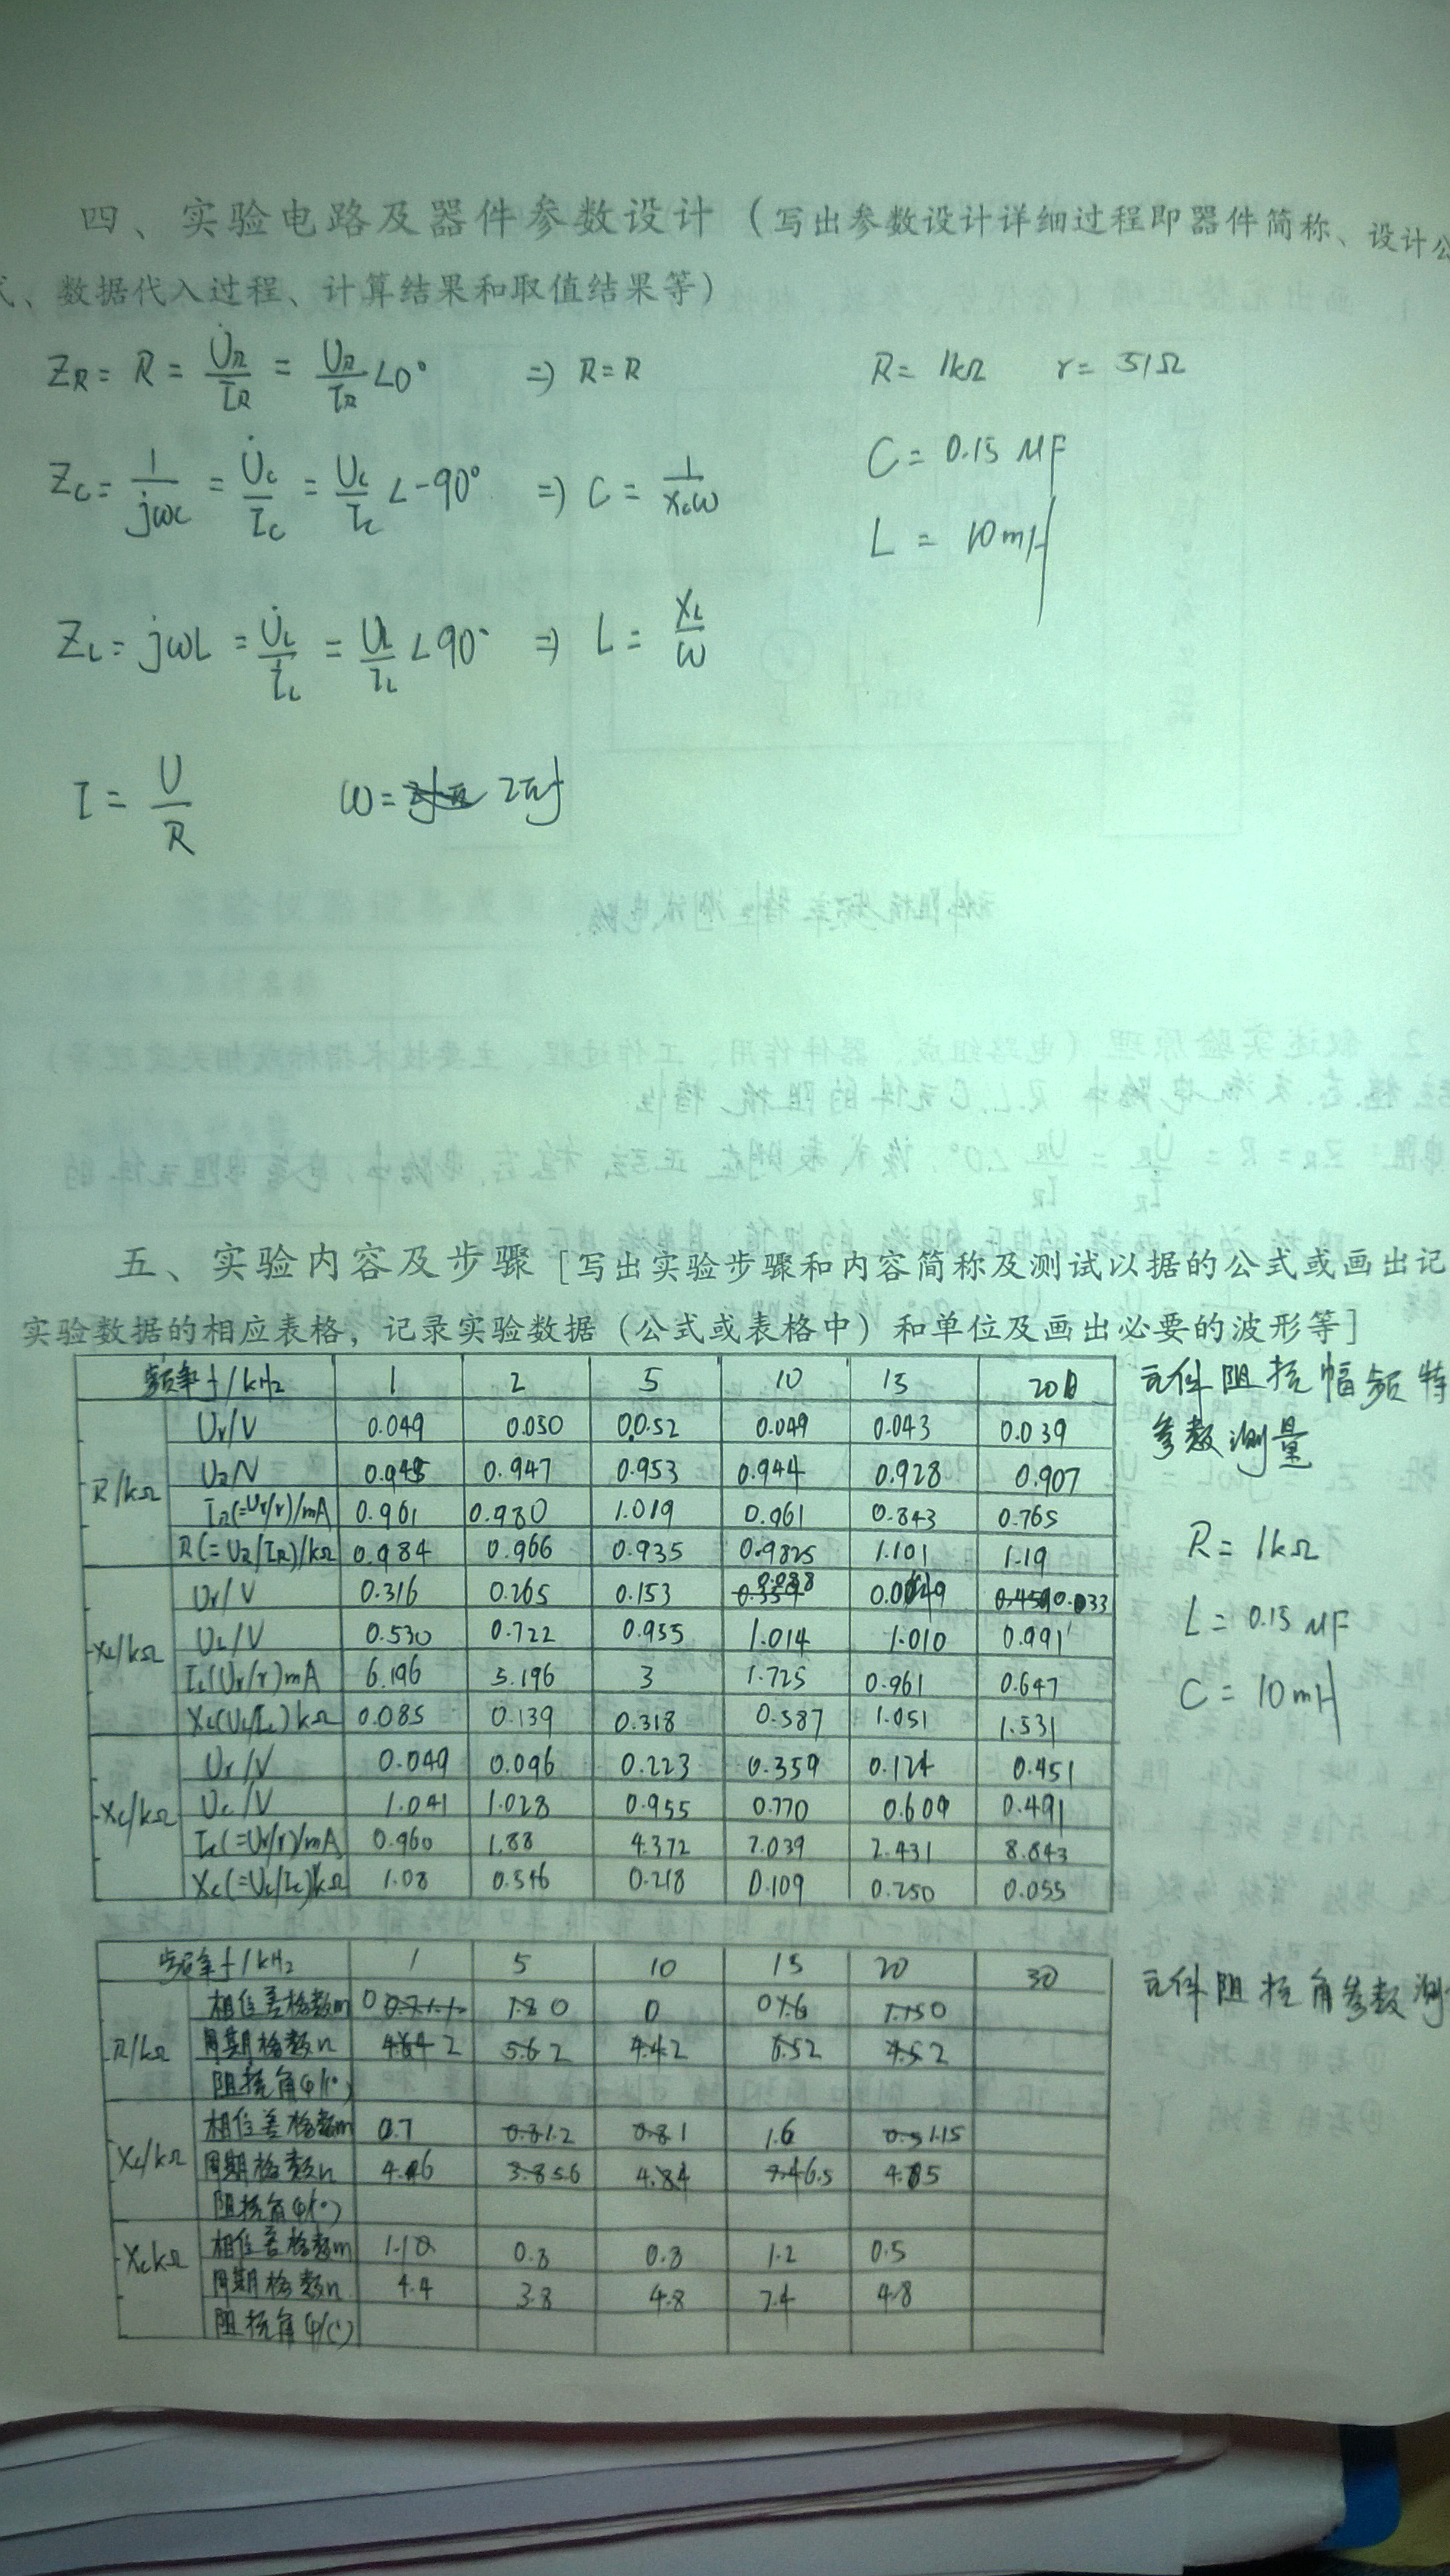 四、实验电路及器件参数设计（写出参数设计详细过程即器件简称、设计公
式、数据代入过程、计算结果和取值结果等）
Z_R = R = U̇_R/İ_R = U_R/I_R ∠0° ⇒ R = R
R = 1kΩ r = 51Ω
Z_C = 1/jωC = U̇_C/I_C = U_C/I_C ∠-90° ⇒ C = 1/X_Cω
C = 0.15 μF
L = 10mH
Z_L = jωL = U̇_L/İ_L = U_L/I_L ∠90° ⇒ L = X_L/ω
I = U/R ω = 2πf
五、实验内容及步骤［写出实验步骤和内容简称及测试以据的公式或画出记
实验数据的相应表格，记录实验数据（公式或表格中）和单位及画出必要的波形等］
频率f/kHz 1 2 5 10 15 20
元件阻抗幅频特
参数测量
R/kΩ
Ur/V 0.049 0.050 0.052 0.049 0.043 0.039
U_R/V 0.945 0.947 0.953 0.944 0.928 0.907
I_R(=Ur/r)/mA 0.961 0.980 1.019 0.961 0.843 0.765
R(=U_R/I_R)/kΩ 0.984 0.966 0.935 0.9825 1.101 1.19
R = 1kΩ
L = 0.15 μF
C = 10mH
X_L/kΩ
Ur/V 0.316 0.265 0.153 0.088 0.049 0.033
U_L/V 0.530 0.722 0.955 1.014 1.010 0.991
I_L(Ur/r)mA 6.196 5.196 3 1.725 0.961 0.647
X_L(U_L/I_L)kΩ 0.085 0.139 0.318 0.587 1.051 1.531
X_C/kΩ
Ur/V 0.049 0.096 0.223 0.359 0.124 0.451
U_C/V 1.041 1.028 0.955 0.770 0.609 0.491
I_C(=Ur/r)/mA 0.960 1.88 4.372 7.039 2.431 8.843
X_C(=U_C/I_C)kΩ 1.08 0.546 0.218 0.109 0.250 0.055
频率f/kHz 1 5 10 15 20 30
元件阻抗角参数测
R/kΩ
相位差格数m 0 0 0 0 0
周期格数n 2 2 2 2 2
阻抗角φ(°)
X_L/kΩ
相位差格数m 0.7 1.2 1 1.6 1.15
周期格数n 4.6 5.6 4 6.5 5
阻抗角φ(°)
X_C kΩ
相位差格数m 0.8 0.8 1.2 0.5
周期格数n 4.4 3.8 4.8 7.4 4.8
阻抗角φ(°)